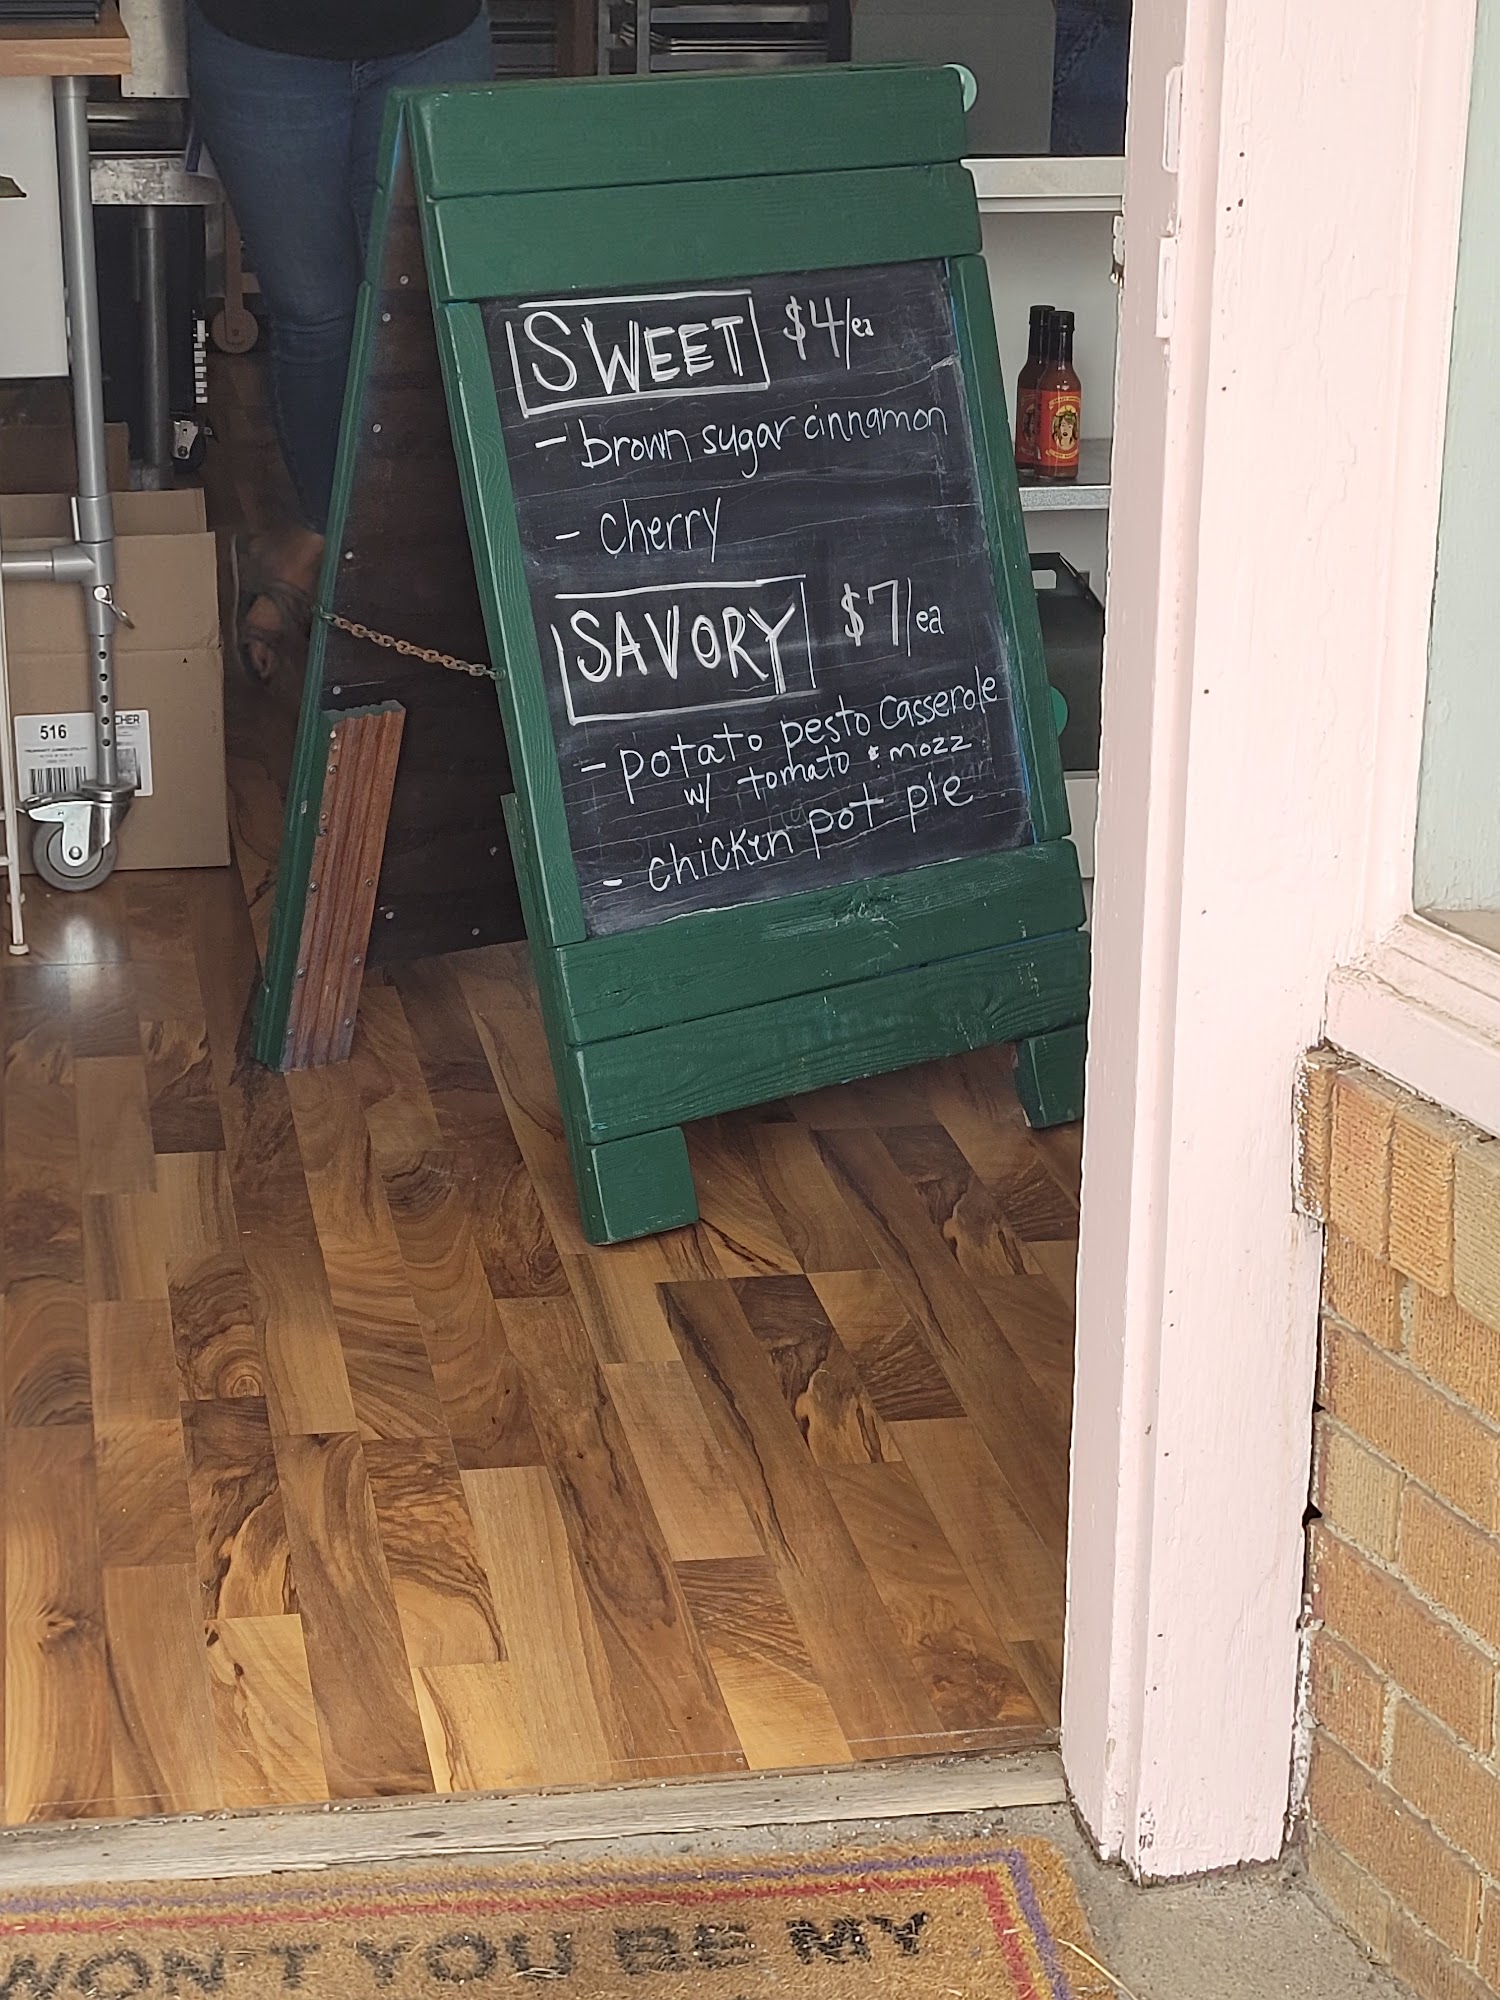 SWEET $4/ea
- brown sugar cinnamon
- cherry
SAVORY $7/ea
- potato pesto casserole
w/ tomato & mozz
- chicken pot pie
516
CHER
WON'T YOU BE MY